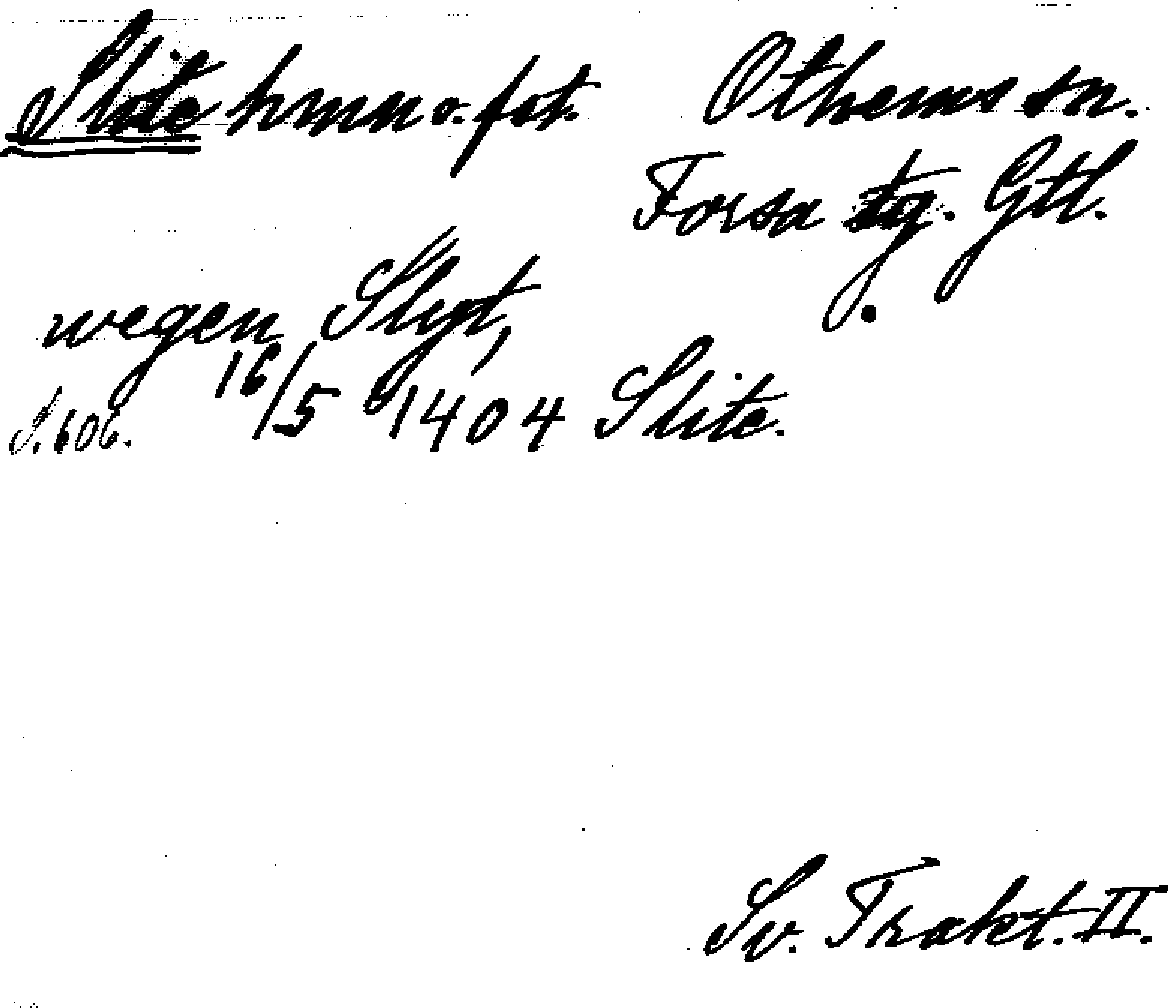 Slite hmn o. fst. Othems sn.
Forsa tg. Gtl.
wegen Slyt,
S. 606. 16/5 1404 Slite.
Sv. Trakt. II.